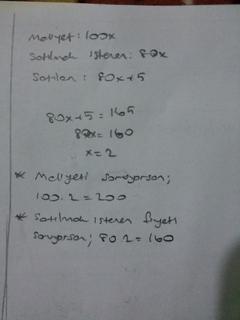 Maliyet: 100x
Satılmak istenen: 80x
Satılan: 80x+5
80x+5=165
80x=160
x=2
* Maliyeti soruyorsan;
100.2=200
* Satılmak istenen fiyatı
soruyorsan; 80.2=160